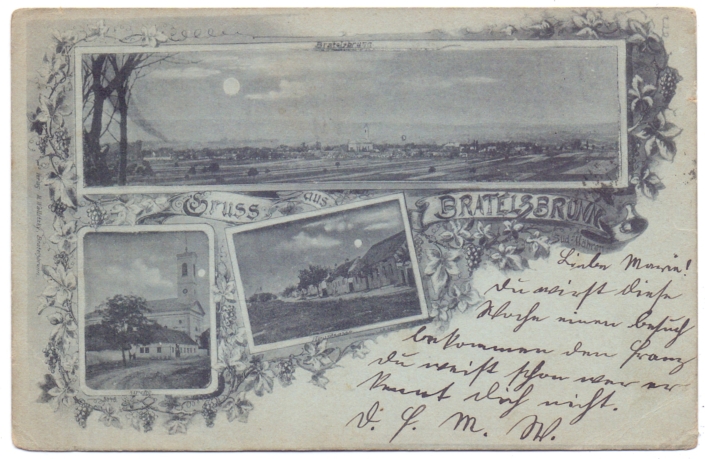 Bratelsbrunn
Gruss aus
BRATELSBRUNN
Süd-Mähren
Liebe Marie!
du wirst diese
Woche einen besuch
bekommen den franz
du weist schon wer er
kennt dich nicht.
D. H. M. W.